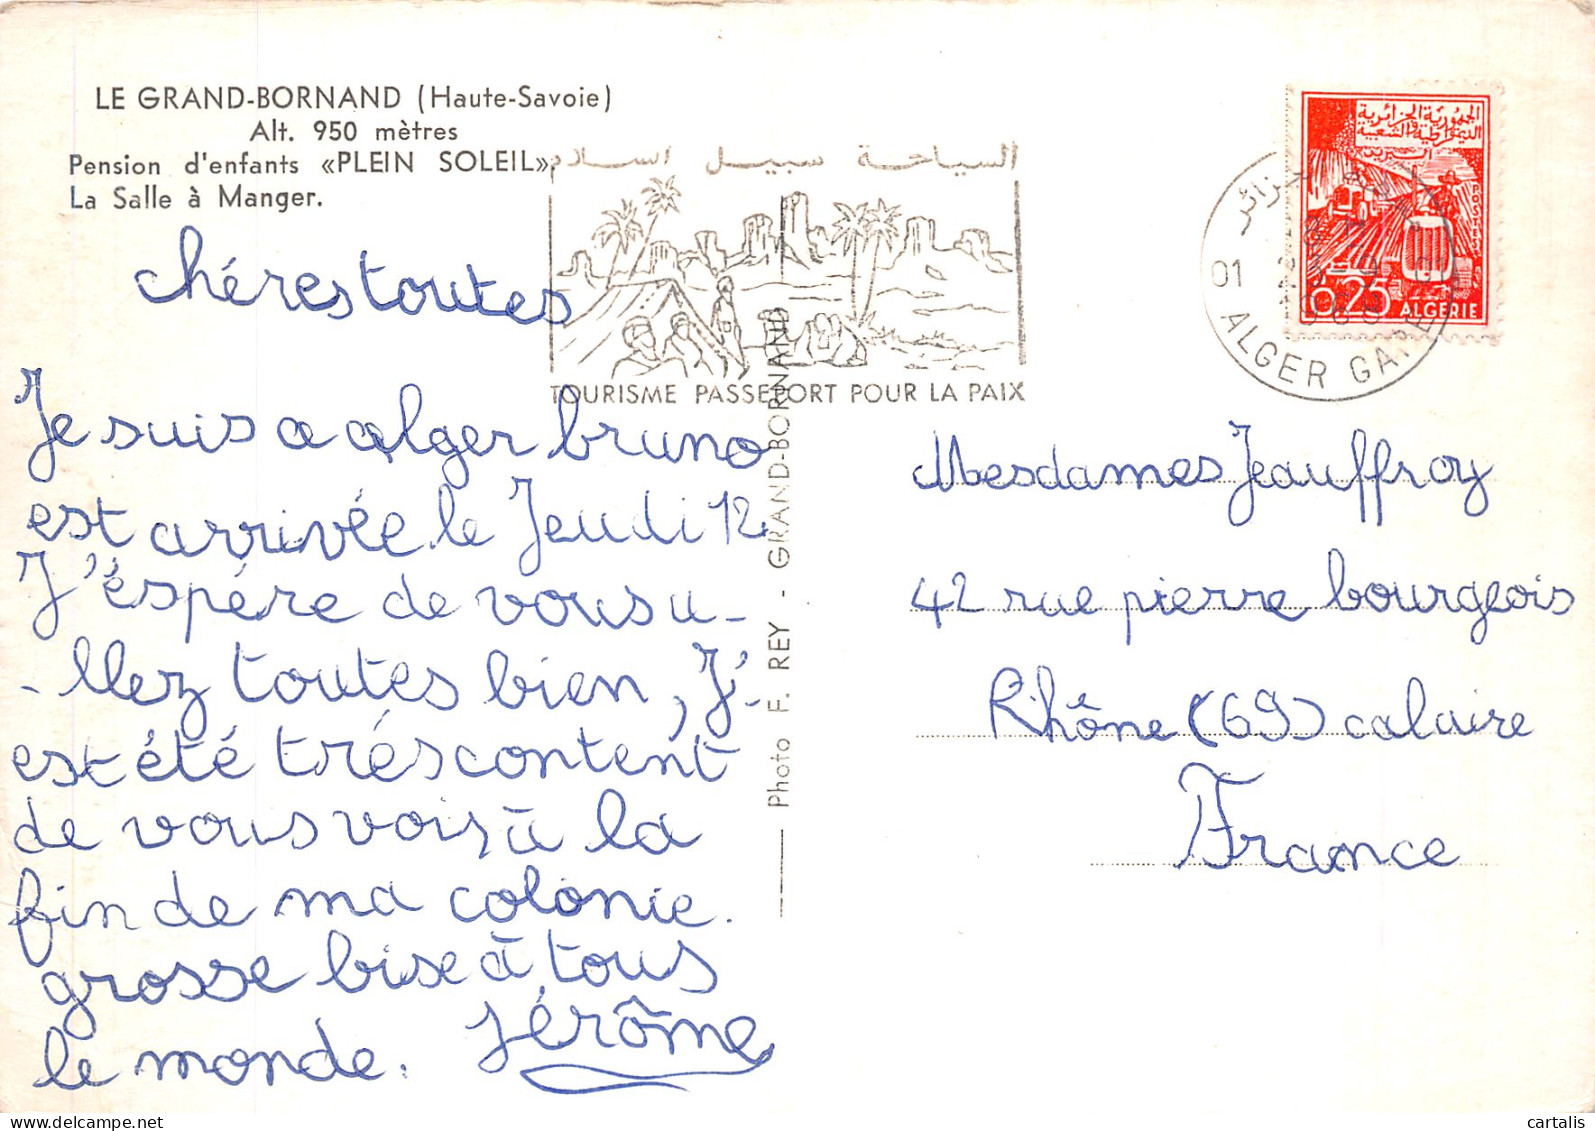 LE GRAND-BORNAND (Haute-Savoie)
Alt. 950 mètres
Pension d'enfants «PLEIN SOLEIL».
La Salle à Manger.
السياحة سبيل السلام
TOURISME PASSEPORT POUR LA PAIX
الجمهورية الجزائرية
الديمقراطية الشعبية
POSTES
0,25 ALGERIE
01 ALGER GARE
chéres toutes
Je suis a alger bruno
est arrivée le Jeudi 12
J'éspére de vous u-
-llez toutes bien, J'-
est été trés content
de vous voir à la
fin de ma colonie.
grosse bise à tous
le monde. Jérôme
Photo F. REY - GRAND-BORNAND
Mesdames Jeauffroy
42 rue pierre bourgeois
Rhône (69) calaire
France
www.cartalis.delcampe.net
cartalis